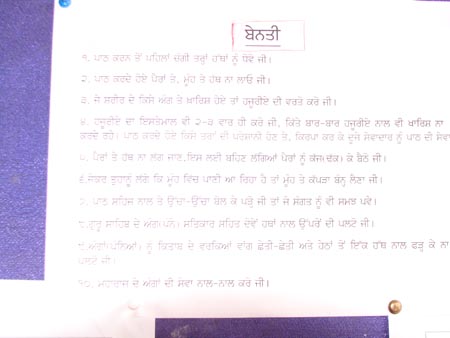 ਬੇਨਤੀ
੧. ਪਾਠ ਕਰਨ ਤੋਂ ਪਹਿਲਾਂ ਚੰਗੀ ਤਰ੍ਹਾਂ ਹੱਥਾਂ ਨੂੰ ਧੋਵੋ ਜੀ।
੨. ਪਾਠ ਕਰਦੇ ਹੋਏ ਪੈਰਾਂ ਤੇ, ਮੂੰਹ ਤੇ ਹੱਥ ਨਾ ਲਾਓ ਜੀ।
੩. ਜੇ ਸਰੀਰ ਦੇ ਕਿਸੇ ਅੰਗ ਤੇ ਖ਼ਾਰਿਸ਼ ਹੋਏ ਤਾਂ ਹਜ਼ੂਰੀਏ ਦੀ ਵਰਤੋ ਕਰੋ ਜੀ।
੪. ਹਜ਼ੂਰੀਏ ਦਾ ਇਸਤੇਮਾਲ ਵੀ ੨-੩ ਵਾਰ ਹੀ ਕਰੋ ਜੀ, ਕਿਤੇ ਬਾਰ-ਬਾਰ ਹਜ਼ੂਰੀਏ ਨਾਲ ਵੀ ਖਾਰਿਸ਼ ਨਾ
ਕਰਦੇ ਰਹੋ। ਪਾਠ ਕਰਦੇ ਹੋਏ ਕਿਸੇ ਤਰ੍ਹਾਂ ਦੀ ਪਰੇਸ਼ਾਨੀ ਹੋਣ ਤੇ, ਕਿਰਪਾ ਕਰ ਕੇ ਦੂਜੇ ਸੇਵਾਦਾਰ ਨੂੰ ਪਾਠ ਦੀ ਸੇਵਾ
੫. ਪੈਰਾਂ ਤੇ ਹੱਥ ਨਾ ਲੱਗ ਜਾਣ, ਇਸ ਲਈ ਬਹਿਣ ਲੱਗਿਆਂ ਪੈਰਾਂ ਨੂੰ ਕੱਜ(ਢਕ) ਕੇ ਬੈਠੋ ਜੀ।
੬. ਜੇਕਰ ਤੁਹਾਨੂੰ ਲੱਗੇ ਕਿ ਮੂੰਹ ਵਿੱਚ ਪਾਣੀ ਆ ਰਿਹਾ ਹੈ ਤਾਂ ਮੂੰਹ ਤੇ ਕੱਪੜਾ ਬੰਨ੍ਹ ਲੈਣਾ ਜੀ।
੭. ਪਾਠ ਸਹਿਜ ਨਾਲ ਤੇ ਉੱਚਾ-ਉੱਚਾ ਬੋਲ ਕੇ ਪੜ੍ਹੋ ਜੀ ਤਾਂ ਜੋ ਸੰਗਤ ਨੂੰ ਵੀ ਸਮਝ ਪਵੇ।
੮. ਗੁਰੂ ਸਾਹਿਬ ਦੇ ਅੰਗ(ਪੰਨੇ) ਸਤਿਕਾਰ ਸਹਿਤ ਦੋਵੇਂ ਹਥਾਂ ਨਾਲ ਉੱਪਰੋਂ ਦੀ ਪਲਟੋ ਜੀ।
੯. ਅੰਗਾਂ(ਪੰਨਿਆਂ) ਨੂੰ ਕਿਤਾਬ ਦੇ ਵਰਕਿਆਂ ਵਾਂਗ ਛੇਤੀ-ਛੇਤੀ ਅਤੇ ਹੇਠਾਂ ਤੋਂ ਇੱਕ ਹੱਥ ਨਾਲ ਫੜ੍ਹ ਕੇ ਨਾ
ਪਲਟੋ ਜੀ।
੧੦. ਮਹਾਰਾਜ ਦੇ ਅੰਗਾਂ ਦੀ ਸੇਵਾ ਨਾਲ-ਨਾਲ ਕਰੋ ਜੀ।